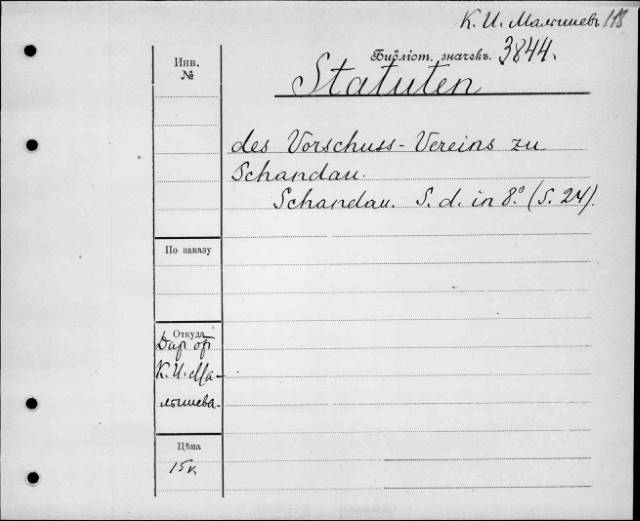 К. И. Малышевъ 118
Библіот. значекъ. 3844.
Инв.
№
Statuten
des Vorschuss-Vereins zu
Schandau.
Schandau. S. d. in 8º. (S. 24).
По заказу
Откуда
Дар от
К. И. Ма-
лышева.
Цѣна
15 к